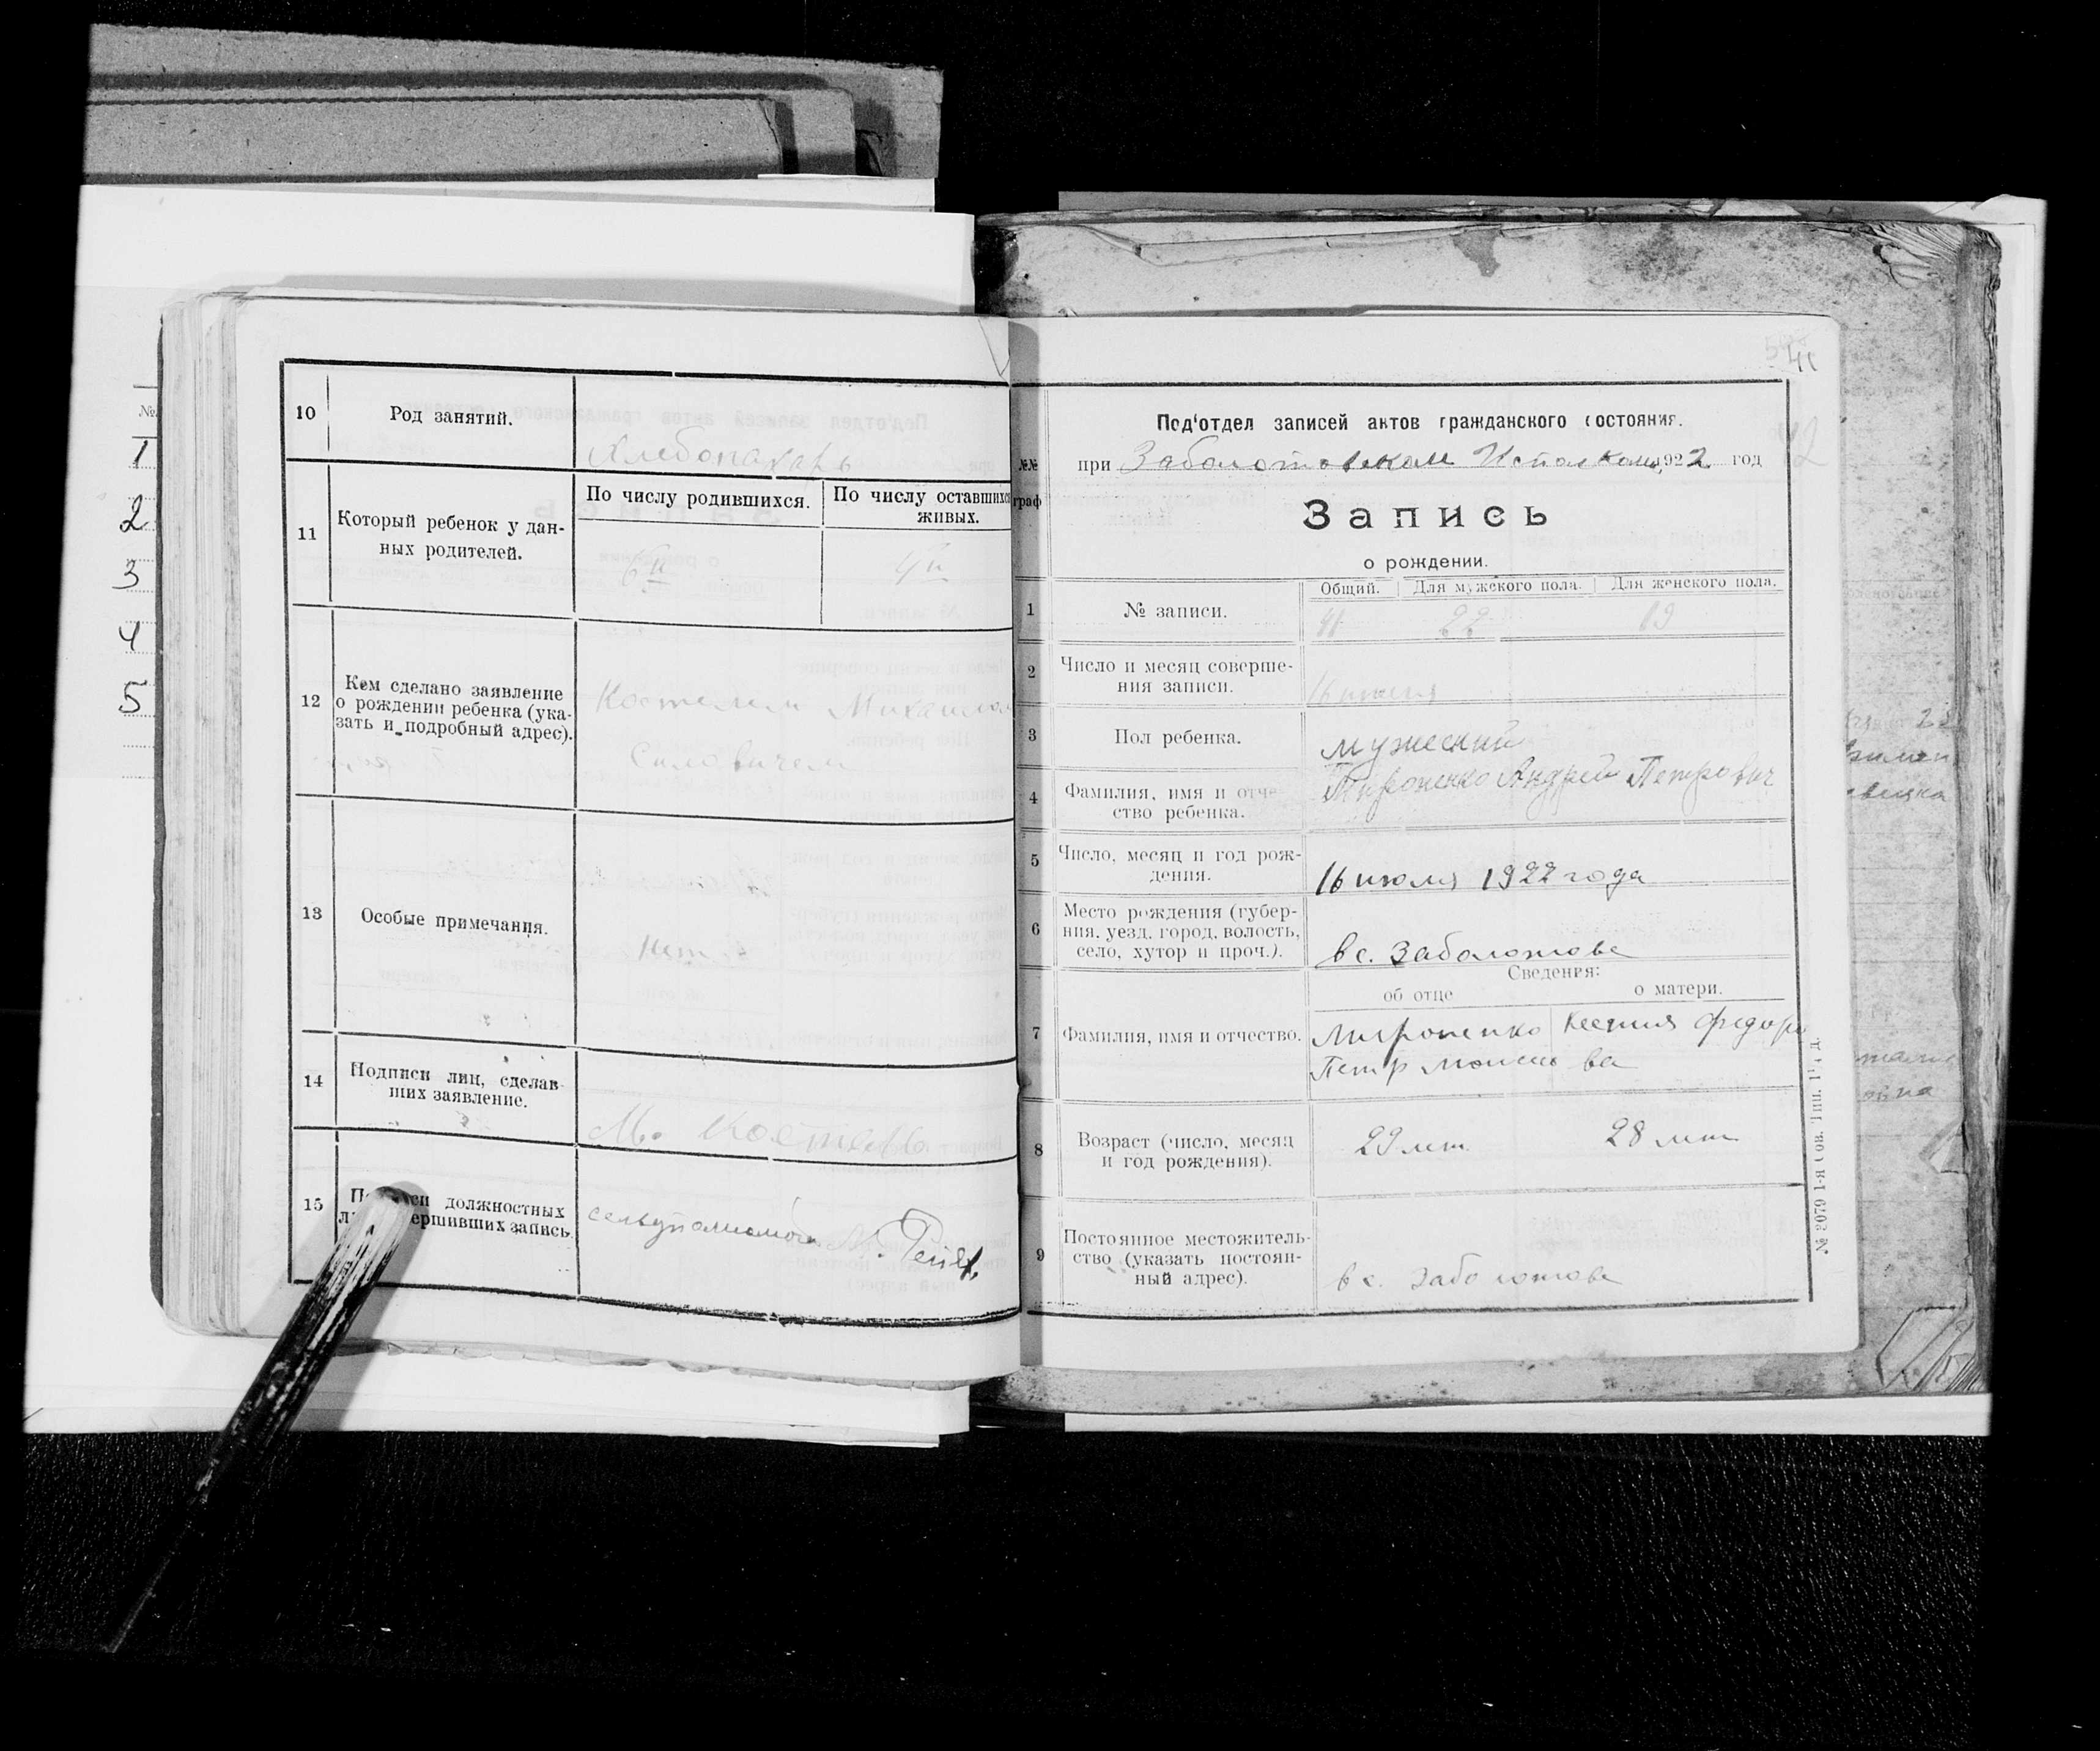 №
1
2
3
4
5
10 Род занятий. Хлебопахарь
11 Который ребенок у дан-
ных родителей.
По числу родившихся. По числу оставшихся
живых.
6й 4й
12 Кем сделано заявление
о рождении ребенка (ука-
зать и подробный адрес).
Костелем Михаилом
Силовичем
13 Особые примечания. Нет
14 Подписи лиц, сделав-
ших заявление.
М. Костель
15 должностных
ершивших запись.
41
42
Под'отдел записей актов гражданского состояния.
№№ граф
при Заболотовском Исполкоме 1922 год
Запись
о рождении.
Общий. Для мужского пола. Для женского пола.
1 № записи. 41 22 19
2 Число и месяц соверше-
ния записи. 16 июля
3 Пол ребенка. мужеский
4 Фамилия, имя и отче-
ство ребенка. Мироненко Андрей Петрович
5 Число, месяц и год рож-
дения. 16 июля 1922 года
6 Место рождения (губер-
ния, уезд, город, волость,
село, хутор и проч.). в с. Заболотове
Сведения:
об отце о матери.
7 Фамилия, имя и отчество. Мироненко Ксения Федоро
Петр ва
8 Возраст (число, месяц
и год рождения). 29 лет 28 лет
9 Постоянное местожитель-
ство (указать постоян-
ный адрес). в с. Заболотове